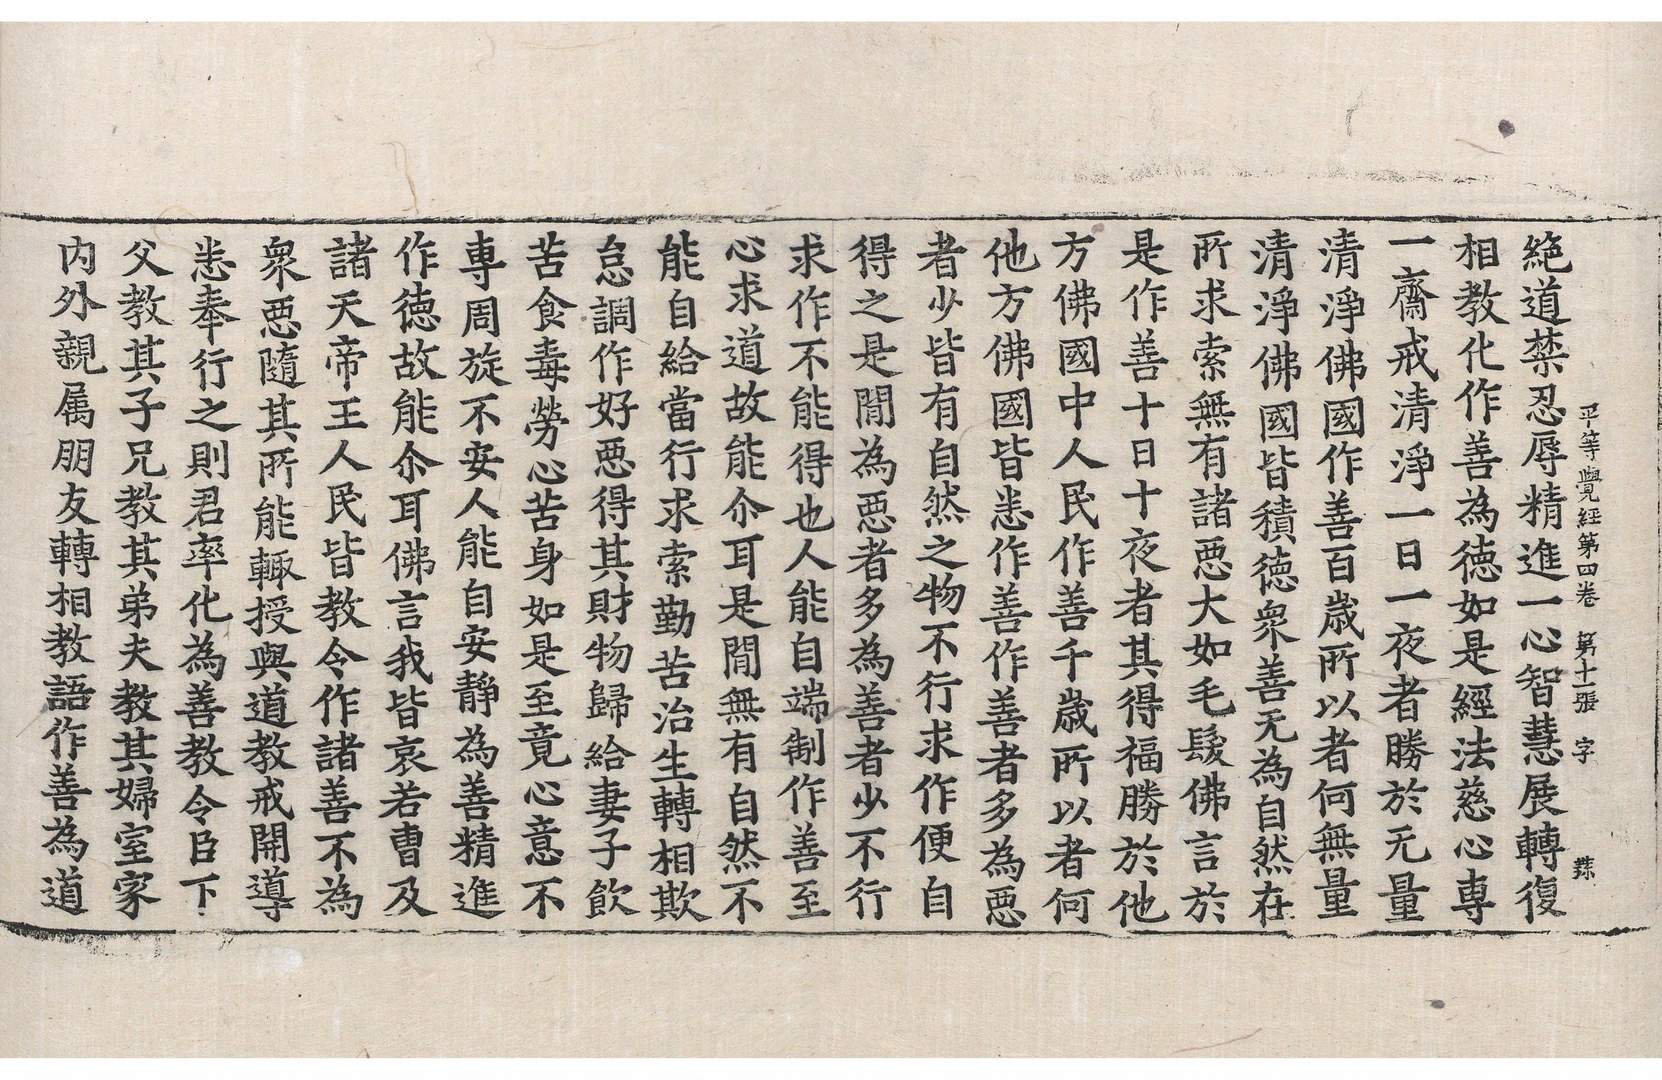 平等覺經第四卷 第十一張 字
絶道禁忍辱精進一心智慧展轉復
相教化作善為徳如是經法慈心專
一齋戒清淨一日一夜者勝於无量
清淨佛國作善百歲所以者何無量
清淨佛國皆積徳衆善无為自然在
所求索無有諸惡大如毛髮佛言於
是作善十日十夜者其得福勝於他
方佛國中人民作善千歲所以者何
他方佛國皆悉作善作善者多為惡
者少皆有自然之物不行求作便自
得之是間為惡者多為善者少不行
求作不能得也人能自端制作善至
心求道故能尒耳是間無有自然不
能自給當行求索勤苦治生轉相欺
怠調作好惡得其財物歸給妻子飲
苦食毒勞心苦身如是至竟心意不
專周旋不安人能自安靜為善精進
作徳故能尒耳佛言我皆哀若曹及
諸天帝王人民皆教令作諸善不為
衆惡隨其所能輙授與道教戒開導
悉奉行之則君率化為善教令臣下
父教其子兄教其弟夫教其婦室家
内外親属朋友轉相教語作善為道